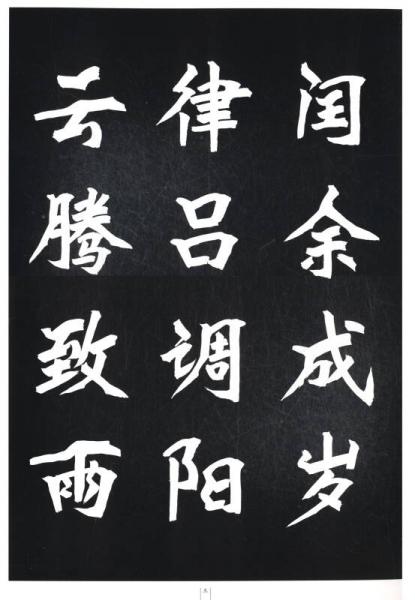 闰余成岁
律吕调阳
云腾致雨